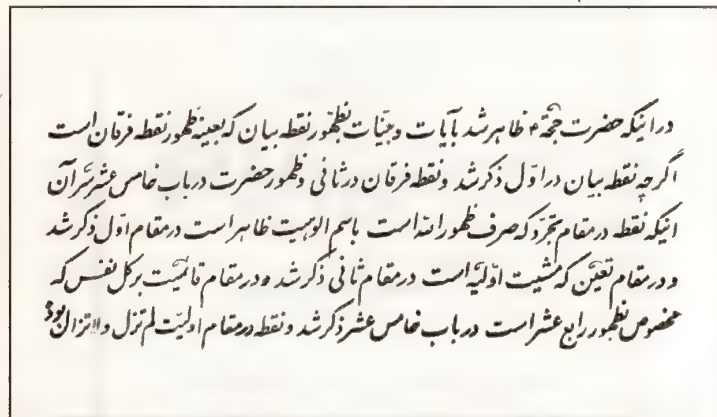 در اینکه حضرت حجة ۴ ظاهر شد بآیات و بینات بظهور نقطه بیان که بعینه ظهور نقطه فرقان است
اگرچه نقطه بیان در اول ذکر شد و نقطه فرقان در ثانی و ظهور حضرت در باب خامس عشر سرآن
اینکه نقطه در مقام تجرد که صرف ظهور الله است باسم الوهیت ظاهر است در مقام اول ذکر شد
و در مقام تعین که مشیت اولیه است در مقام ثانی ذکر شد و در مقام قائمیت بر کل نفس که
مخصوص بظهور رابع عشر است در باب خامس عشر ذکر شد و نقطه در مقام اولیت لم تزل و لاتزال بوده